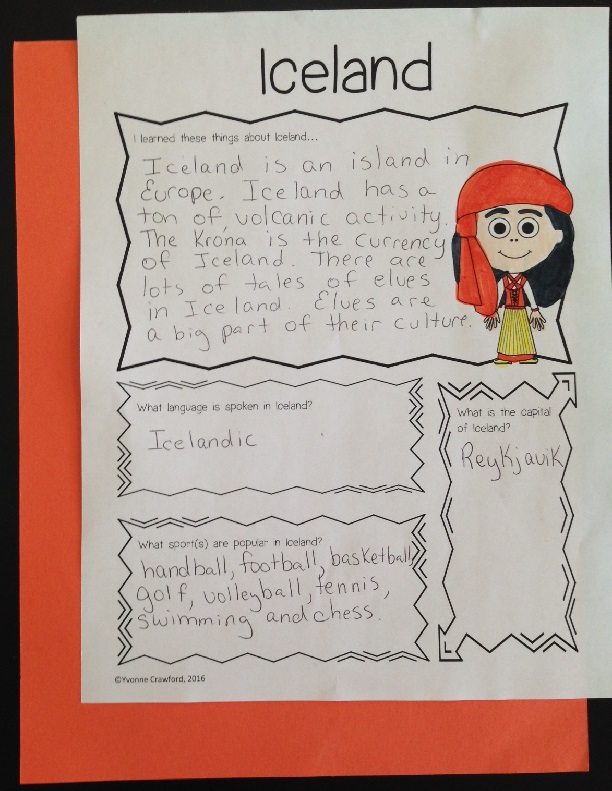 Iceland
I learned these things about Iceland...
Iceland is an island in
Europe. Iceland has a
ton of volcanic activity.
The Krona is the currency
of Iceland. There are
lots of tales of elves
in Iceland. Elves are
a big part of their culture.
What language is spoken in Iceland?
Icelandic
What is the capital
of Iceland?
Reykjavik
What sport(s) are popular in Iceland?
handball, football, basketball,
golf, volleyball, tennis,
swimming and chess.
©Yvonne Crawford, 2016